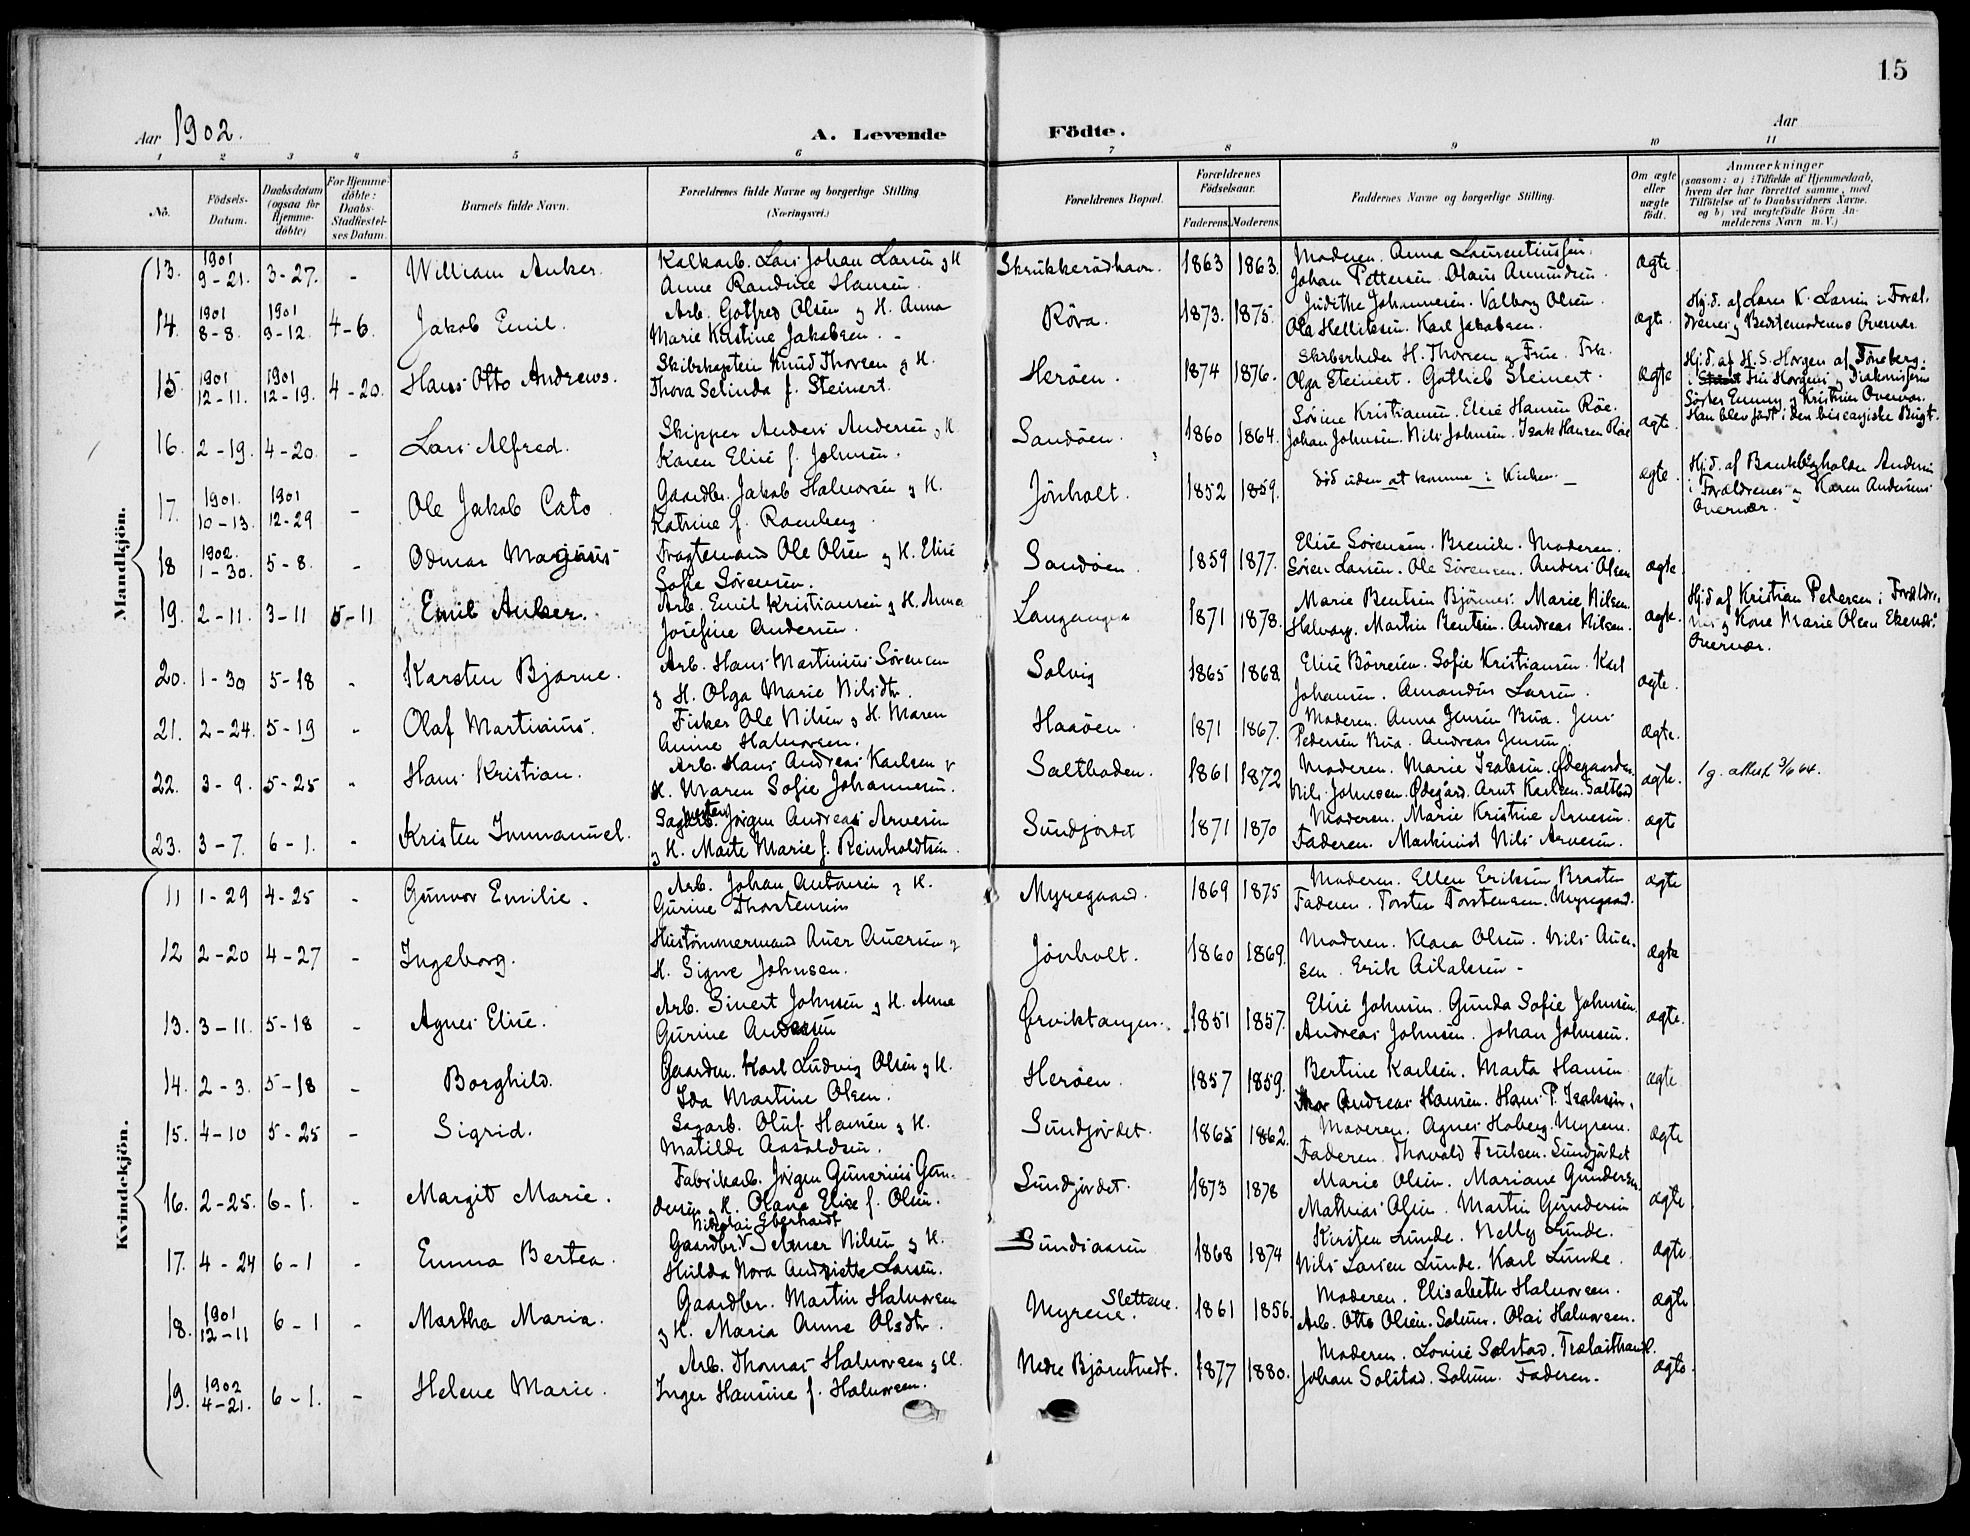 15
Aar 1902.
A. Levende Födte.
Aar
1 2 3 4 5 6 7 8 9 10 11
No.
Födsels-Datum.
Daabsdatum (ogsaa for Hjemme-döbte)
For Hjemme-döbte: Daabs-Stadfæstel-ses Datum.
Barnets fulde Navn.
Forældrenes fulde Navne og borgerlige Stilling
(Næringsvei.)
Forældrenes Bopæl.
Forældrenes Födselsaar.
Faderens. Moderens.
Faddernes Navne og borgerlige Stilling.
Om ægte eller uægte födt.
Anmærkninger
(saasom: a) i Tilfælde af Hjemmedaab,
hvem der har forrettet samme, med
Tilföielse af to Daabsvidners Navne,
og b) ved uægtefödte Börn An-
melderens Navn m. V.)
Mandkjön.
13. 1901 9-21. 3-27. - William Anker. Kalkarb. Lars Johan Larsen og H. Anne Randine Hansen. 1863 1863. Moderen. Anna Laurentiussen. Johan Pettersen. Olaus Amundsen. ægte.
14. 1901 8-8. 1901 9-12. 4-6. Jakob Emil. Arb. Gotfred Olsen og H. Anna Marie Kristine Jakobsen. - Röra. 1873. 1875. Judithe Johannesen. Valborg Olsen. Ole Hellitesen. Karl Jakobsen. ægte. Hj.d. af Lars K. Larsen i Foræl-drenes og Bedstemoderens Overvær.
15. 1901 12-11. 1901 12-19. 4-20. Hans Otto Andrews. Skibskaptein Knud Thorsen og H. Thora Selinda f. Steinert. Heröen. 1874 1876. Skibsrheder H. Thorsen og Frue. Frk. Olga Steinert. Gotlieb Steinert. ægte Hj.d. af H. S. Horgen af Tönsberg. i Fru Horgens og Diakonissens Söster Emmy og Kristines Overvær. Han blev födt i den biscayiske Bugt.
16. 2-19. 4-20. - Lars Alfred. Skipper Anders Andersen og H. Karen Elise f. Johnsen. Sandöen. 1860 1864. Sörine Kristiansen. Elise Hansen Röe. Johan Johnsen. Nils Johnsen. Isak Hansen Röe ægte.
17. 1901. 10-13. 1901 12-29 - Ole Jakob Cato. Gaardbr. Jakob Halvorsen og H. Katrine f. Ramberg. Jönholt. 1852 1859. död uden at komme i Kirken. - ægte. Hj.d. af Bankbogholder Andersen i Forældrenes og Karen Andersens Overvær.
18 1902. 1-30. 5-8. - Odmar Marinius Fragtemand Ole Olsen og H. Elise Sofie Sörensen. Sandöen. 1859 1877. Elise Sörensen. Brevik. Moderen. Sören Larsen. Ole Sörensen. Anders Olsen ægte.
19. 2-11. 3-11 5-11 Emil Anker. Arb. Emil Kristiansen og H. Anna Josefine Andersen. Langangen 1871 1878. Marie Bentsen Björnes. Marie Nilsen. Halvarp. Martin Bentsen. Andreas Nilsen. ægte. Hj.d af Kristian Pedersen i Forældre-nes og Kone Marie Olsen Ekenæs Overvær.
20. 1-30 5-18 - Karsten Bjarne. Arb. Hans Martinius Sörensen og H. Olga Marie Nilsdtr. Solvig 1865 1868. Elise Börresen. Sofie Kristiansen. Karl Johansen. Amandus Larsen. ægte.
21. 2-24. 5-19 - Olaf Martinius. Fisker Ole Nilsen og H. Maren Anine Halvorsen. Haaöen. 1871 1867. Moderen. Anna Jensen Bua. Jens Pedersen Bua. Andreas Jensen. ægte.
22. 3-9. 5-25 - Hans Kristian. Arb. Hans Andreas Karlsen og H. Maren Sofie Johannesen. Saltboden. 1861 1872 Moderen. Marie Isaksen. Ödegaarden. Nils Johnsen. Ödegård. Arnt Karlsen. Saltbod ægte. 1 g. attest 3/6 64.
23. 3-7. 6-1. - Kristen Immanuel. Jörgen Andreas Arvesen og H. Marte Marie f. Reinholdtsen. Sundjordet 1871 1870 Moderen. Marie Kristine Arvesen. Faderen. Maskinist Nils Arvesen. ægte
Kvindekjön.
11 1-29 4-25 - Gunvor Emilie. Arb. Johan Antonsen og H. Gurine Thorstensen Myregaard. 1869 1875 Moderen. Ellen Eriksen Braaten Faderen. Torsten Torstensen. Myregaard. ægte
12 2-20 4-27 - Ingeborg. Hustömmermand Auer Auersen og H. Signe Johnsen. Jönholt. 1860 1869. Moderen. Klara Olsen. Nils Auer-sen. Erik Ailaksen - ægte
13. 3-11. 5-18 - Agnes Elise. Arb. Sivert Johnsen og H. Anne Gurine Andersen Örviktangen. 1851 1857. Elise Johnsen. Gunda Sofie Johnsen. Andreas Johnsen. Johan Johnsen. ægte.
14. 2-3. 5-18 - Borghild. Gaardm. Karl Ludvig Olsen og H. Ida Martine Olsen. Heröen. 1857 1859. Bertine Karlsen. Marta Hansen Andreas Hansen. Hans P. Isaksen. ægte
15. 4-10 5-25 - Sigrid. Sagarb. Oluf Hansen og H. Matilde Aasoldsen. Sundjordet. 1865 1862. Moderen. Agnes Hoberg. Myrene. Faderen. Thorvald Trulsen. Sundjordet ægte
16. 2-25. 6-1. - Margit Marie. Fabrikarb. Jörgen Gunerius Gun-dersen og H. Olava Elise f. Olsen. Sundjordet. 1873 1878 Marie Olsen. Mariane Gundersen Mathias Olsen. Martin Gundersen ægte
17. 4-24 6-1 - Emma Bertea. Gaardbr. Nikolai Eberhardt Selmer Nilsen og H. Hulda Nora Andriette Larsen. Sundsaasen 1868 1874 Kirsten Lunde. Nelly Lunde. Nils Larsen Lunde. Karl Lunde. ægte
18. 1901 12-11 6-1 - Martha Maria. Gaardbr. Martin Halvorsen og H. Maria Anne Olsdtr. Myrene. Slettene. 1861 1856. Moderen. Elisabeth Halvorsen. Arb. Otto Olsen. Solum. Olai Halvorsen. ægte
19. 1902 4-21. 6-1. - Helene Marie. Arb. Thomas Halvorsen og H. Inger Hansine f. Halvorsen. Nedre Björntvedt. 1877 1880. Moderen. Lovise Solstad. Trælasthandl. Johan Solstad. Solum. Faderen. ægte.